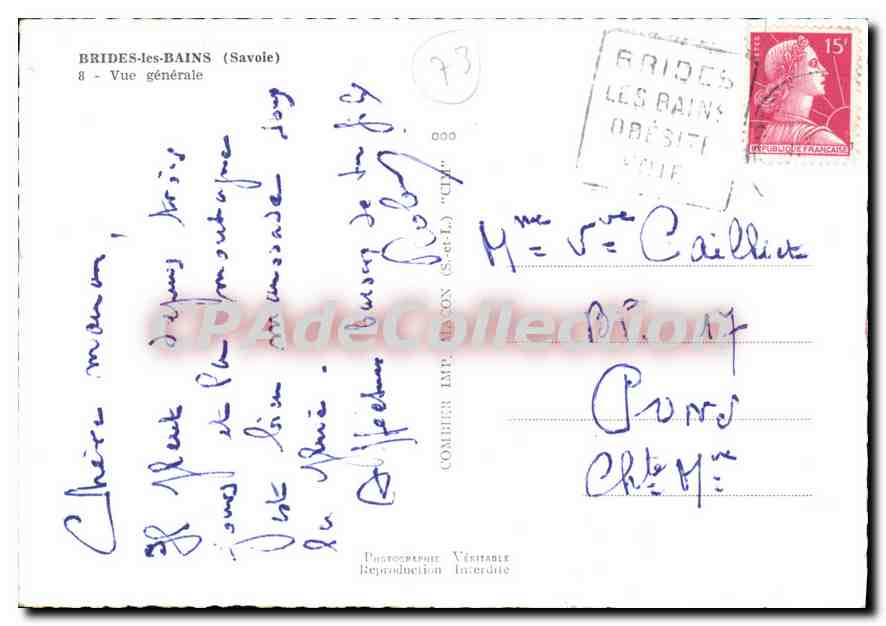 BRIDES-les-BAINS (Savoie)
8 - Vue générale
73
BRIDES
LES BAINS
OBÉSITÉ
15F
POSTES
REPUBLIQUE FRANÇAISE
Chère maman,
Il pleut depuis trois
jours et la montagne
est bien maussade sous
la pluie.
Affectueux baisers de ton fils
COMBIER IMP. MACON (S.-et-L.) "CIM"
Mme Vve
BP. 17
Pons
Chte Mme
PHOTOGRAPHIE VÉRITABLE
Reproduction Interdite
CPAdeCollection